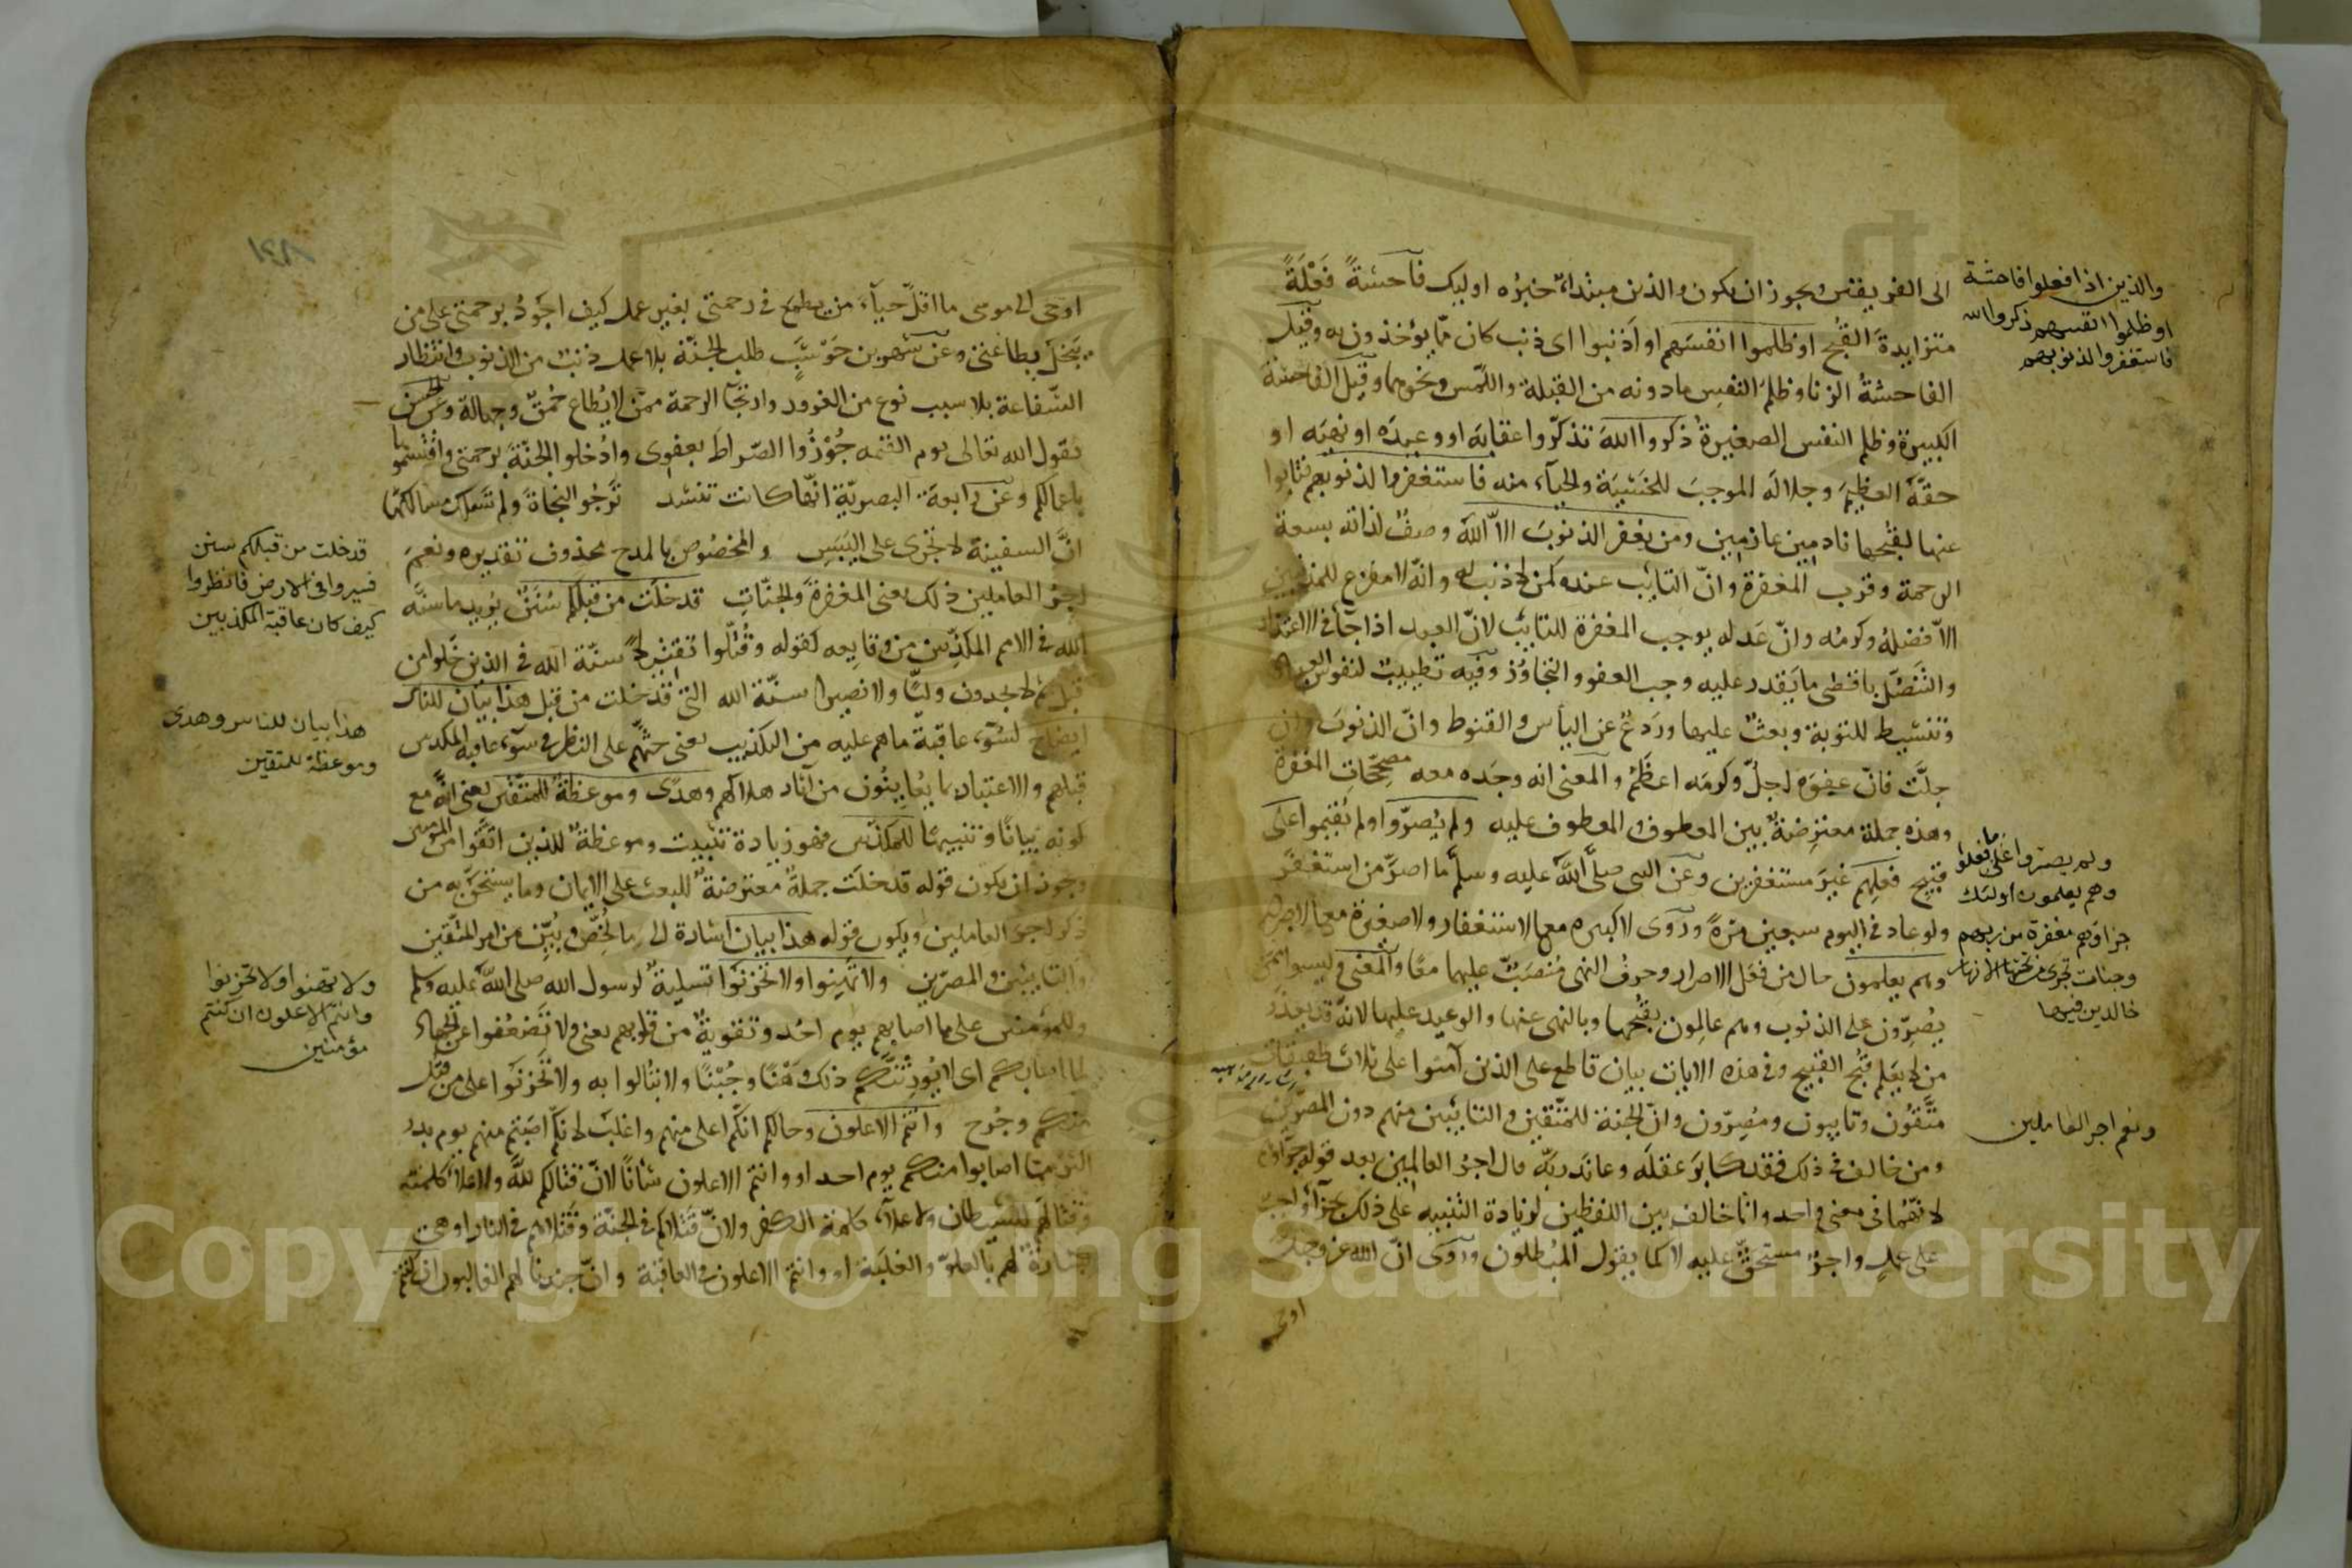 الى الفريقين ويجوز ان يكون والذين مبتدأ خبره اوليك فاحشةً فَعْلَةً
متزايدةَ القُبح او ظلموا انفسَهم او اَذنبوا اى ذنب كان ممّا يؤخذون به وقيل
الفاحشةُ الزنا وظلم النفس مادونه من القبلة واللّمس ونحوهما وقيل الفاحشة
الكبيرة وظلم النفس الصغيرةُ ذكروا اللهَ تذكّروا عقابَه او وعيدَه او نهيَه او
حقَّه العظيمَ وجلالَه الموجبَ للخشية والحياء منه فاستغفروا لذنوبهم فتابوا
عنها لقُبحها نادمين عازمين ومن يغفر الذنوبَ الاّ اللهَ وصفٌ لذاته بسعة
الرحمة وقرب المغفرة وانّ التايب عنده كمن لا ذنب له وانّه لا مفزع للمذنبين
الاّ فضلهُ وكرمُه وانّ عَدله يوجب المغفرة للتايب لانّ العبد اذا جآء فى الاعتذار
والتَنَصُّل باقصى ما يَقدر عليه وجب العفو والتجاوُز وفيه تطييبٌ لنفوس العباد
وتنشيط للتوبة وبعثٌ عليها وردعٌ عن اليأس والقنوط وانّ الذنوبَ وان
جلَّت فانّ عفوَه اجلُّ وكرمَه اعظمُ والمعنى انه وحده معه مصحّحات المغفرة
وهذه جملة معترضةٌ بين المعطوف والمعطوف عليه ولم يُصرّوا ولم يُقيموا على
قبيح فعلِهم غيرَ مستغفرين وعن النبى صلّى اللهُ عليه وسلّم ما اصرّ من استغفر
ولو عاد فى اليوم سبعين مرةً ورُوى لا كبيره مع الاستغفار ولا صغيرة مع الاصرار
وهم يعلمون حال من فعل الاصرار وحرفُ النهى مُنصَبٌّ عليهما معًا والمعنى وليسوا ممن
يُصِرّون على الذنوب وهم عالِمون بقُبحها وبالنهى عنها والوعيد عليها لانّه قد يعذر
من لا يَعلم قُبحَ القبيح وفى هذه الايات بيان قاطع على الذين آمنوا على ثلاث طبقات
متّقون وتايبون ومُصِرّون وانّ الجنة للمتّقين والتائبين منهم دون المصرّين
ومن خالف فى ذلك فقد كابرَ عقلَه وعاندَ ربّه قال اجرُ العاملين بعد قوله جزاؤهم
لانّهما فى معنى واحد وانما خالف بين اللفظين لزيادة التنبيه على ذلك جزآء واجب
على عملٍ واجرٌ مستحقٌّ عليه لا كما يقول المُبطلون ورُوى انّ الله عز وجل
اوحى
والذين اذا فعلوا فاحشة
او ظلموا انفسهم ذكروا الله
فاستغفروا لذنوبهم
ولم يصروا على ما فعلوا
وهم يعلمون اولئك
جزاؤهم مغفرة من ربهم
وجنات تجرى من تحتها الانهار
خالدين فيها
ونعم اجر العاملين
اوحى الى موسى ما اقلّ حيآء من يطمع فى رحمتى بغير عمل كيف اجودُ برحمتى على من
يَبخلُ بطاعتى وعن شهر بن حَوْشَب طلب الجنّة بلا عمل ذنب من الذنوب وانتظار
الشفاعة بلا سبب نوع من الغرور وارتجآ الرحمة ممّن لا يُطاع حُمقٌ وجهالة وعن الحسن
يقول الله تعالى يوم القيمه جُوزُوا الصّراطَ بعفوى وادُخلوا الجنّةَ برحمتى واقتسموها
باعمالكم وعن رابعة البصريّة انّها كانت تنشد تَرجُو النجاةَ ولم تَسلك مسالكَها
انَّ السفينة لا تجرى على اليَبَسِ والمخصُوص بالمدح محذوف تقديره ونعم
اجر العاملين ذلك يعنى المغفرةَ والجنّاتِ قد خلَت من قبلكم سُنَنٌ يريد ما سنَّه
الله فى الامم المكذّبين من وقايعه كقوله وقُتّلوا تقتيلا سنّة الله فى الذين خلوا من
قبل ثم لا يجدون وليًّا ولا نصيرا سنّة الله التى قد خلت من قبل هذا بيان للناس
ايضاح لسُوء عاقبة ما هم عليه من التكذيب يعنى حثَّهم على النظر فى سوء عاقبة المكذبين
قبلهم والاعتبار بما يُعاينُون من آثار هلاكهم وهُدًى وموعظةٌ للمتّقين يعنى انّه مع
كونه بيانًا وتنبيهًا للمكذّبين فهو زيادة تثبيت وموعظةٌ للذين اتّقوا من المؤمنين
ويجوز ان يكون قوله قد خلَت جملةً معترضةً للبعث على الايمان وما يستحقّ به من
ذكر اجر العاملين ويكون قوله هذا بيان اشارة الى ما لُخّص وبُيّن من امر المتّقين
والتايبين والمصرّين ولا تَهِنوا ولا تَحْزَنوا تسليةٌ لرسول الله صلى الله عليه وسلم
وللمؤمنين على ما اصابهم يوم اُحُد وتقويةٌ من قلوبهم يعنى ولا تَضعُفوا عن الجهاد
لما اصابكم اى لا يُورِثَنّكم ذلك وَهْنًا وجُبْنًا ولا تبالوا به ولا تحزنوا على من قُتل
منكم وجُرح وانتم الاعلون وحالكم انّكم اعلى منهم واغلب لانكم اصَبتم منهم يوم بدر
اكثر ممّا اصابوا منكم يوم احد او وانتم الاعلون شأنًا لانّ قتالكم لله ولاعلاء كلمته
وقتالهم للشيطان ولاعلاء كلمة الكفر ولانّ قَتلاكم فى الجنّة وقَتلاهم فى النار او هى
بشارةٌ لهم بالعلوّ والغلَبة او وانتم الاعلون فى العاقبة وانّ جندنا لهم الغالبون ان كنتم
قد خلت من قبلكم سنن
فسيروا فى الارض فانظروا
كيف كان عاقبة المكذبين
هذا بيان للناس وهدى
وموعظة للمتقين
ولا تهنوا ولا تحزنوا
وانتم الاعلون ان كنتم
مؤمنين
Copyright © King Saud University